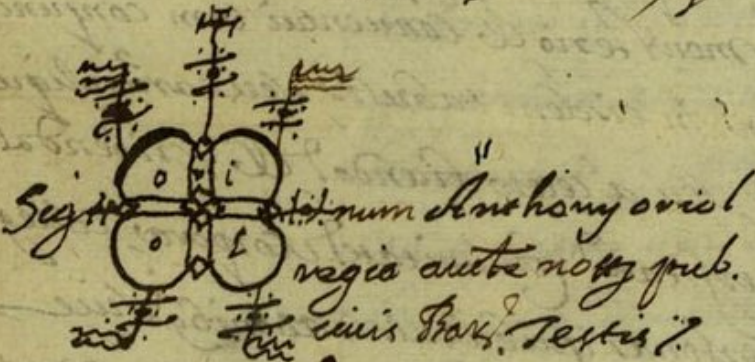 Sig num Anthony oriol
regia aucte notrj pub.
civis Bar. Testis